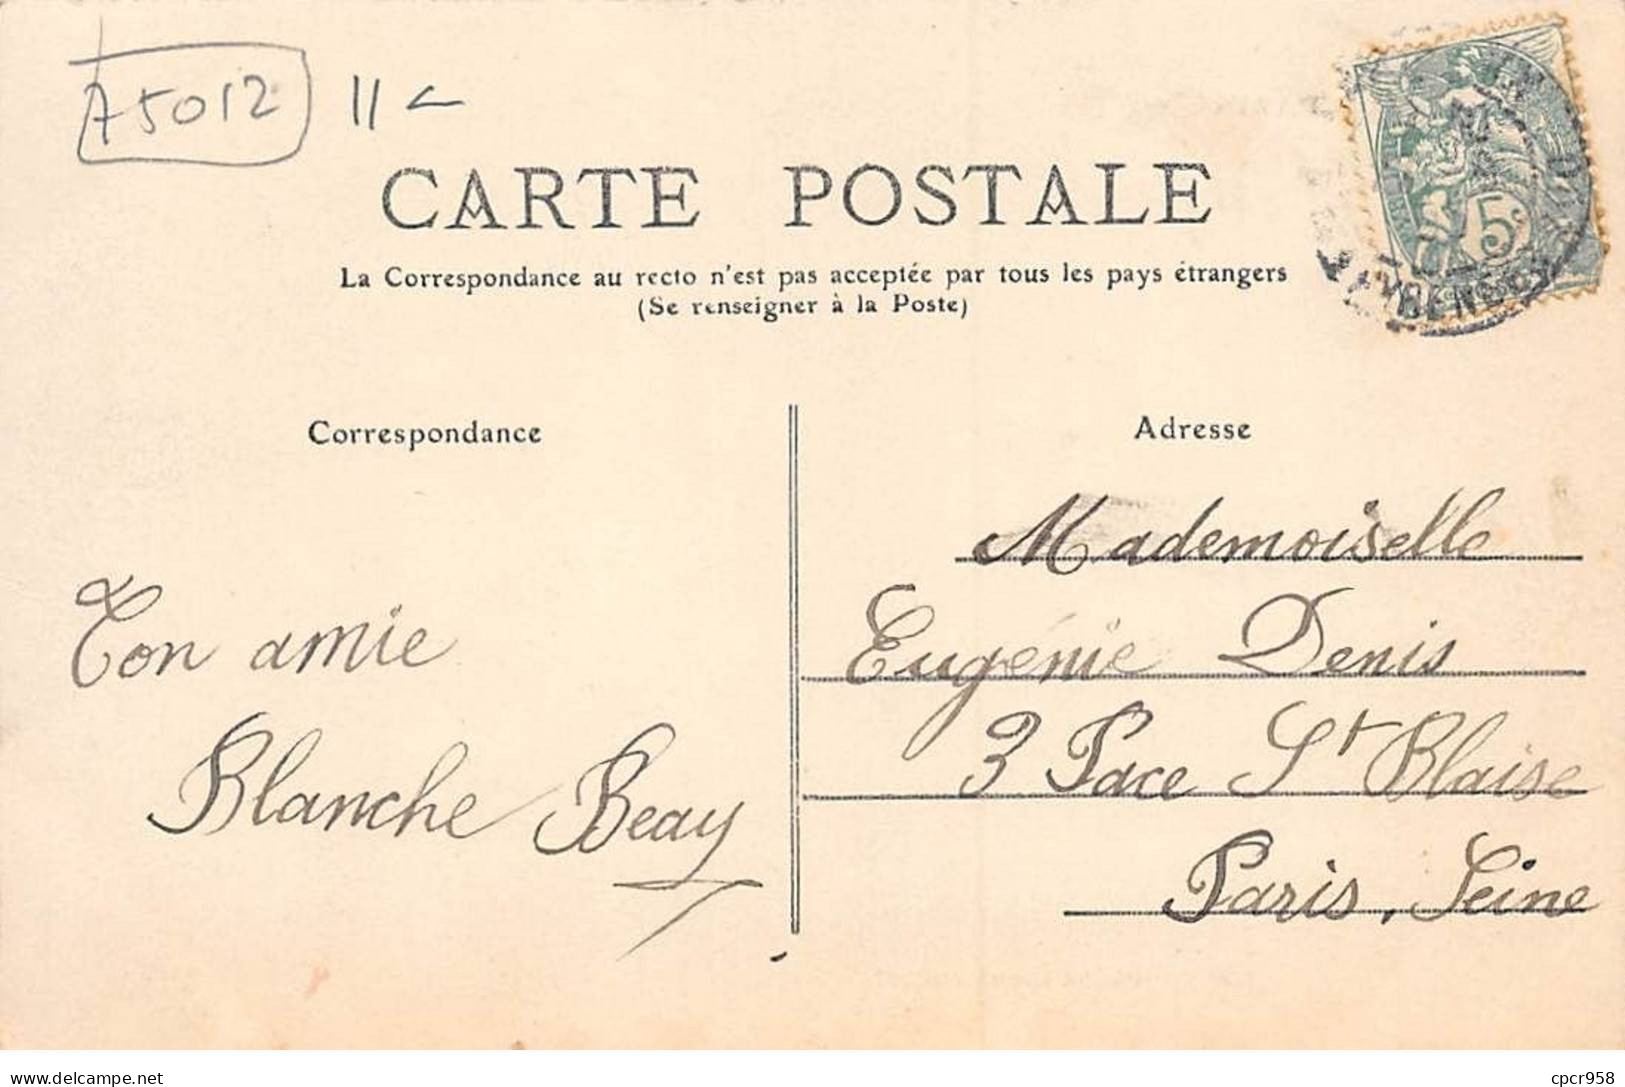 75012 11
CARTE POSTALE
La Correspondance au recto n'est pas acceptée par tous les pays étrangers
(Se renseigner à la Poste)
5c
Correspondance
Adresse
Ton amie
Blanche Beauy
Mademoiselle
Eugénie Denis
3 Pace St Blaise
Paris, Seine
delcampe.net
cpcr958